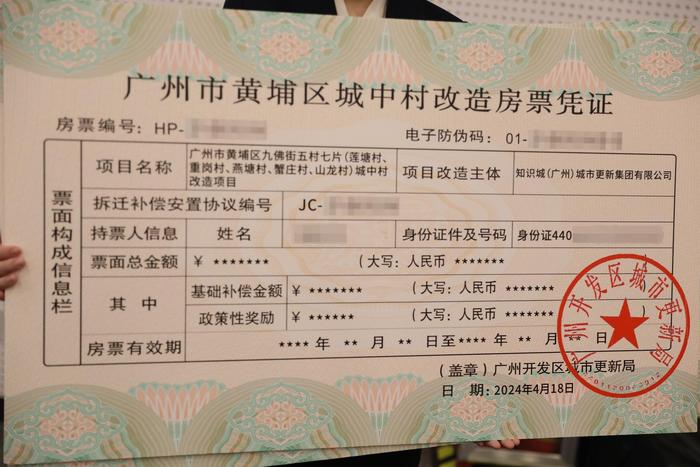 广州市黄埔区城中村改造房票凭证
房票编号：HP-
电子防伪码：01-
票面构成信息栏
项目名称
广州市黄埔区九佛街五村七片（莲塘村、
重岗村、燕塘村、蟹庄村、山龙村）城中村
改造项目
项目改造主体
知识城（广州）城市更新集团有限公司
拆迁补偿安置协议编号
JC-
持票人信息
姓名
身份证件及号码
身份证440
票面总金额
¥ *******
（大写：人民币 *******
其中
基础补偿金额
¥ *******
（大写：人民币 *******
政策性奖励
¥ ******
（大写：人民币 *******
）
房票有效期
**** 年 ** 月 ** 日至**** 年 ** 月 ** 日
（盖章）广州开发区城市更新局
日 期：2024年4月18日
广州开发区城市更新局